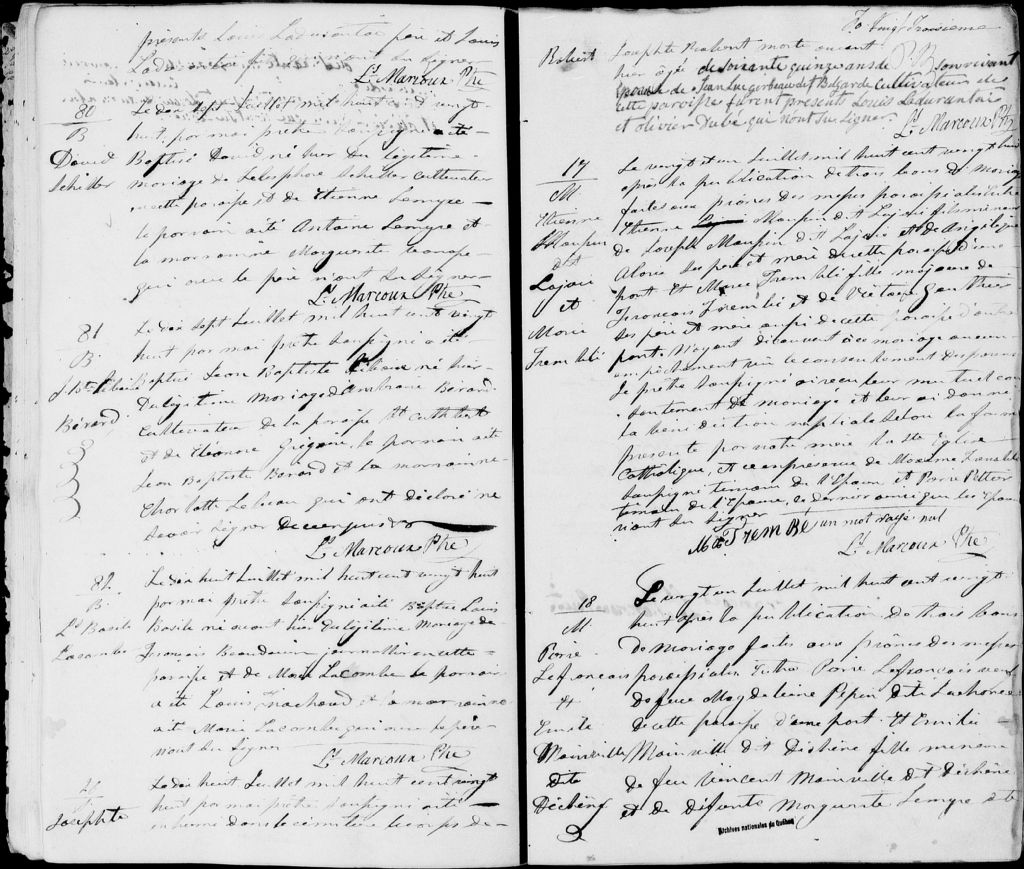 présents Louis Ladurantaie père et Louis
Ladurantaie
Ls. Marcoux Ptre
80
B
David
Schiller
Le dix sept Juillet mil huit cent vingt
huit par moi prêtre soussigné a été
Baptisé David né hier du légitime
mariage de Telesphore Schiller cultivateur
en cette paroisse et de Etienne Lemyre
le parrain a été Antoine Lemyre et
la marrainne Marguerite
qui avec le père n'ont su signer
Ls. Marcoux Ptre
81
B
J. Bte
Bérard
Le dix sept Juillet mil huit cent vingt
huit par moi prêtre soussigné a été
Baptisé Jean Baptiste né hier
du légitime mariage d'Ambroise Bérard
cultivateur de la paroisse St Cuthbert
et de Eléonore le parrain a été
Jean Baptiste Bérard et la marrainne
Charlotte Lebeau qui ont déclaré ne
savoir signer de ce enquis
Ls. Marcoux Ptre
82
B.
Ls Basile
Lacombe
Le dix huit Juillet mil huit cent vingt huit
par moi prêtre soussigné a été Baptisé Louis
Basile né avant hier du légitime mariage de
François Beaudouin journallier en cette
paroisse et de Marie Lacombe le parrain
a été Louis et la marrainne
a été Marie Lacombe qui avec le père
n'ont su signer
Ls. Marcoux Ptre
Josephte
Le dix huit Juillet mil huit cent vingt
huit par moi prêtre soussigné a été
inhumé dans le cimetière le corps de
fo Vingt Troisieme
Robert
Josephte Robert morte avant
hier âgée de soixante quinze ans de son vivant
épouse de Jean Luc Corbeau dit Belgarde cultivateur de
cette paroisse furent présents Louis Ladurantaie
et Olivier Dubé qui n'ont su signer.
Ls. Marcoux Ptr
17
M
Etienne
Maupin
dit
Lajoie
et
Marie
Tremblé
Le vingt et un Juillet mil huit cent vingt huit
après la publication de trois bans de mariage
faites aux prônes des messes paroissiales entre
Etienne Maupin dit Lajoie fils mineur
de Joseph Maupin dit Lajoie et de Angélique
Alarie ses père et mère de cette paroisse d'une
part Et Marie Tremblé fille majeure de
François Tremblé et de Victoire
ses père et mère aussi de cette paroisse d'autre
part. N'ayant découvert au mariage aucun
empêchement vu le consentement des parens
Je prêtre soussigné ai reçu leur mutuel con
sentement de mariage et leur ai donné
la bénédiction nuptiale selon la forme
presente par notre mère la Ste Eglise
Catholique, et ce en presence de Maxime Tremblé
soussigné temoin de l'Epoux et Pierre Pelletier
temoin de l'Epouse, ce dernier ainsi que les Epoux
n'ont su signer
M Tremblé un mot rayé nul
Ls. Marcoux Ptre
18
M.
Pierre
Lefrancois
et
Emilie
Mainville
dite
Dechêne
Le vingt un Juillet mil huit cent vingt
huit après la publication de trois bans
de mariage faites aux prônes des messes
paroissiales Entre Pierre Lefrancois veuf
de feue Magdeleine Pepin dite Lachance
de cette paroisse d'une part. Et Emilie
Mainville dit Dechêne fille mineure
de feu Vincent Mainville dit Dechêne
et de défunte Marguerite Lemyre de
Archives nationales du Québec